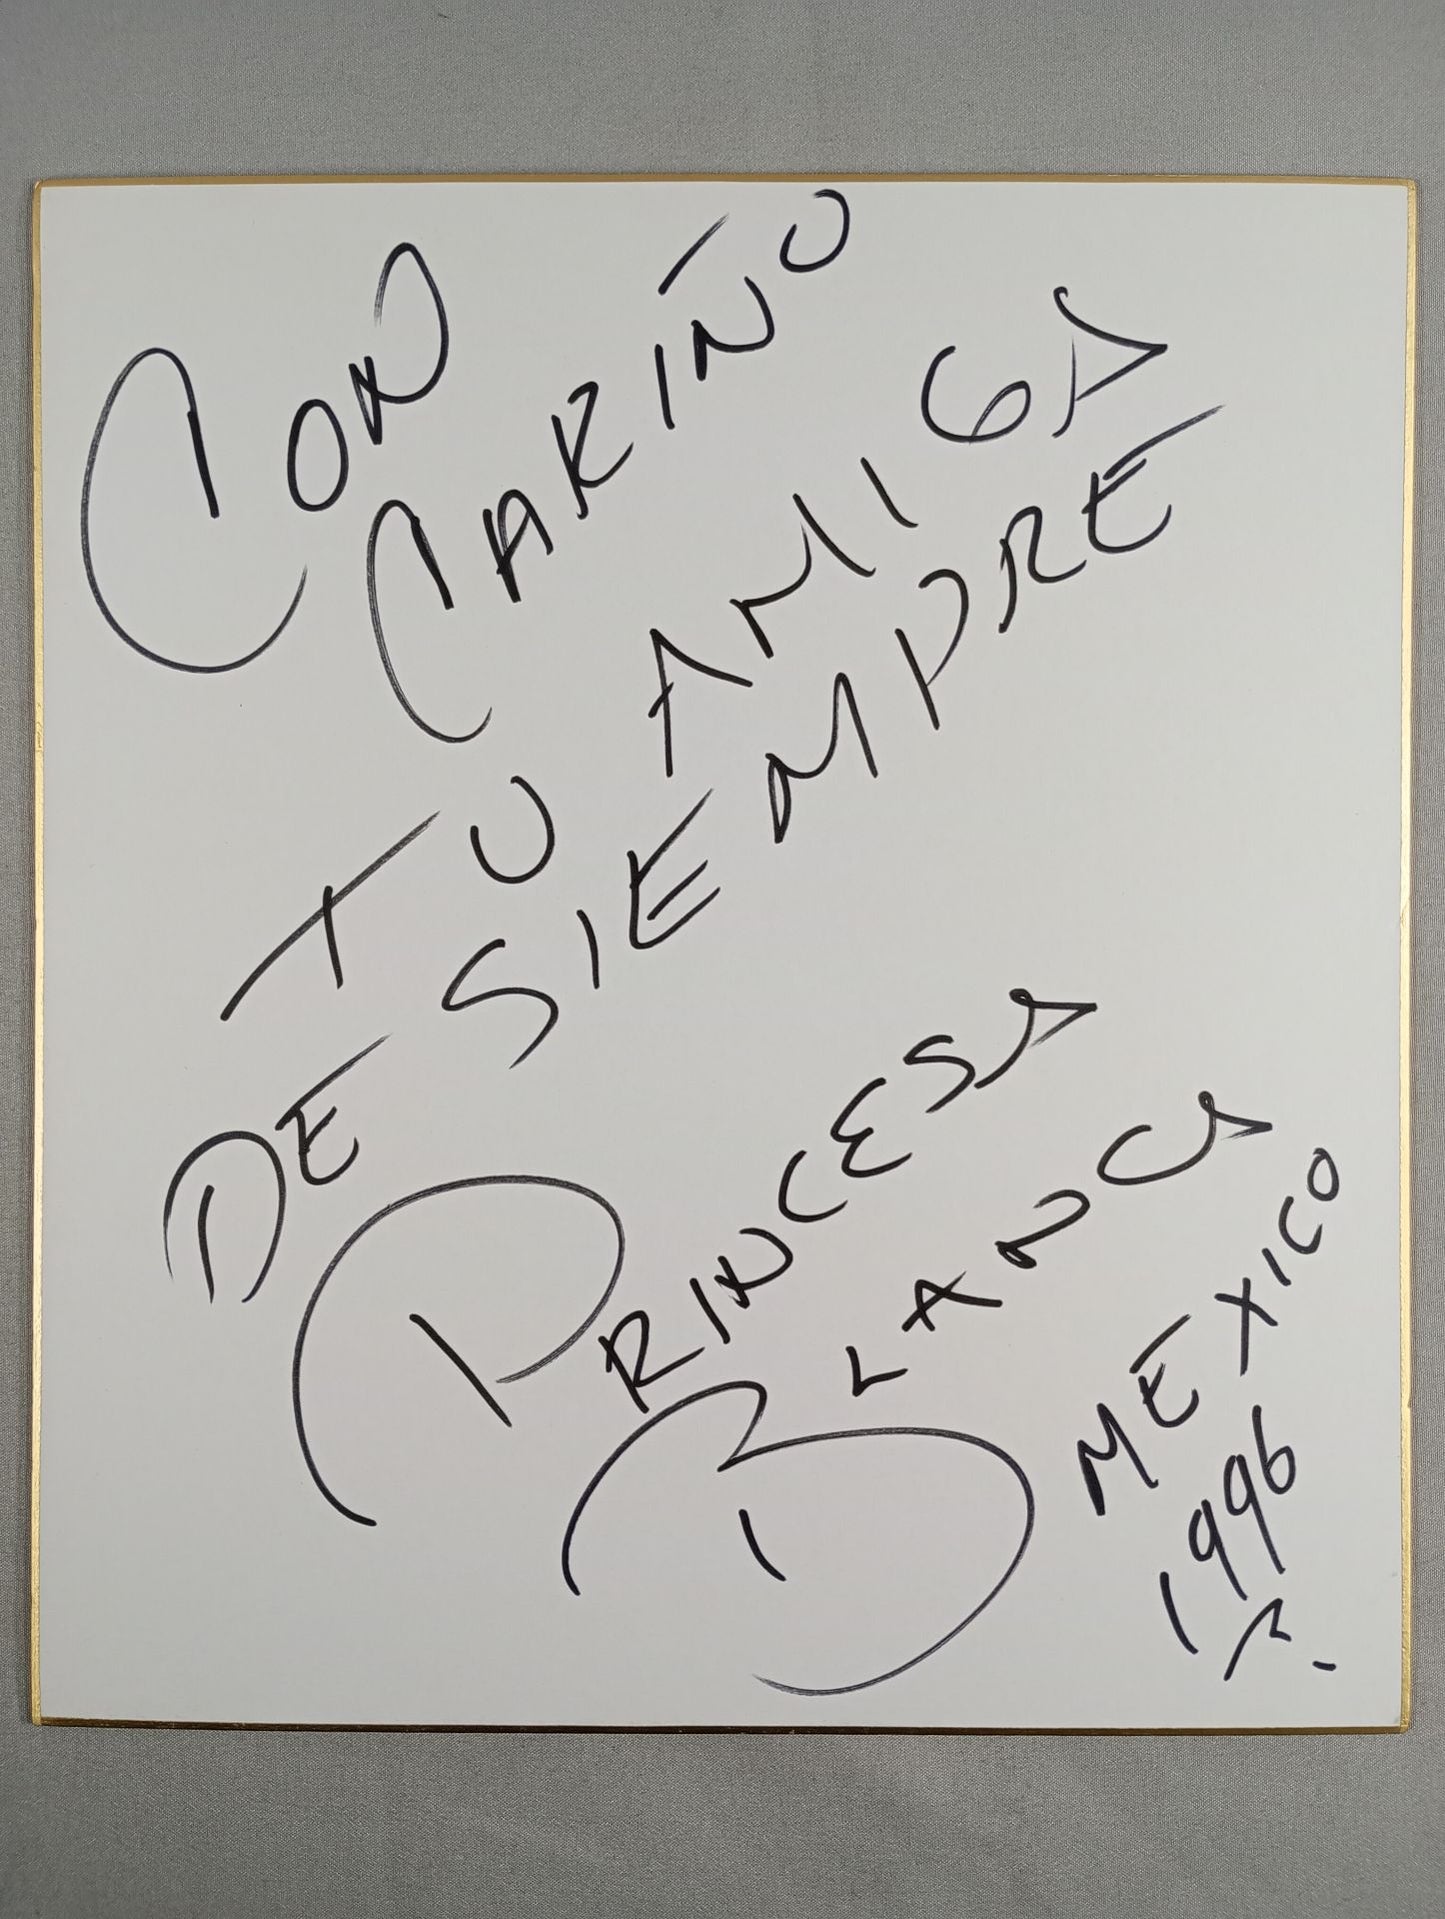 CON
CARIÑO
TU AMIGA
DE SIEMPRE
PRINCESA
BLANCA
MEXICO
1996